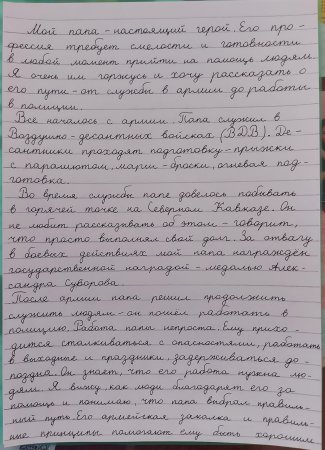 Мой папа - настоящий герой. Его про-
фессия требует смелости и готовности
в любой момент прийти на помощь людям.
Я очень им горжусь и хочу рассказать о
его пути - от службы в армии до работы
в полиции.
Все началось с армии. Папа служил в
Воздушно-десантных войсках (ВДВ). Де-
сантники проходят подготовку - прыжки
с парашютом, марш-броски, огневая под-
готовка.
Во время службы папе довелось побывать
в горячей точке на Северном Кавказе. Он
не любит рассказывать об этом - говорит,
что просто выполнял свой долг. За отвагу
в боевых действиях мой папа награждён
государственной наградой - медалью Алек-
сандра Суворова.
После армии папа решил продолжить
служить людям - он пошёл работать в
полицию. Работа папы непроста. Ему прихо-
дится сталкиваться с опасностями, работать
в выходные и праздники, задерживаться до-
поздна. Он знает, что его работа нужна лю-
дям. Я вижу, как люди благодарят его за
помощь и понимаю, что папа выбрал правиль-
ный путь. Его армейская закалка и правиль-
ные принципы помогают ему быть хорошим